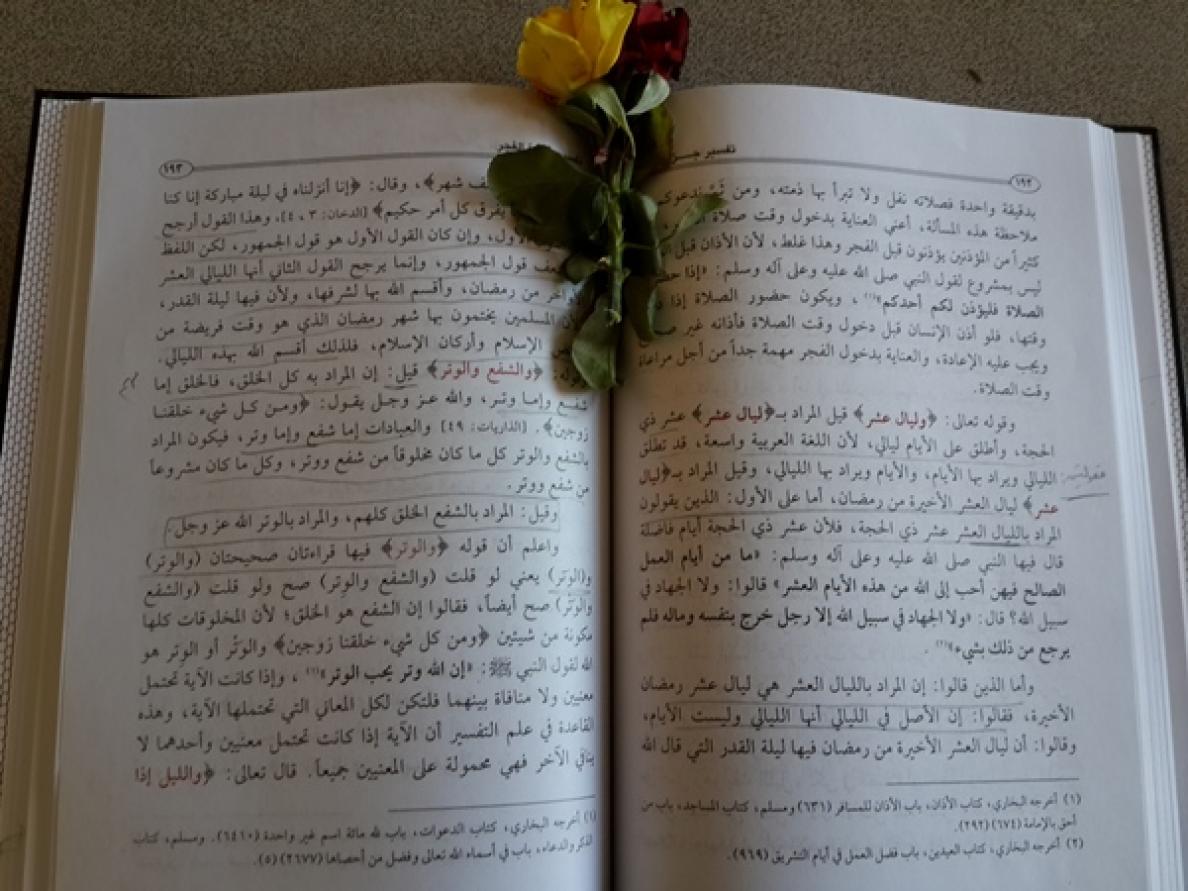 ١٩٢
تفسير جـ
بدقيقة واحدة فصلاته نفل ولا تبرأ بها ذمته، ومن ثَم
ملاحظة هذه المسألة، أعني العناية بدخول وقت صلاة
كثيراً من المؤذنين يؤذنون قبل الفجر وهذا غلط، لأن الأذان قبل
ليس بمشروع لقول النبي صلى الله عليه وعلى آله وسلم: «إذا
الصلاة فليؤذن لكم أحدكم»(١)، ويكون حضور الصلاة إذا
وقتها، فلو أذن الإنسان قبل دخول وقت الصلاة فأذانه غير
ويجب عليه الإعادة، والعناية بدخول الفجر مهمة جداً من أجل مراعاة
وقت الصلاة.
وقوله تعالى: ﴿وليال عشر﴾ قيل المراد بـ﴿ليال عشر﴾ عشر ذي
الحجة، وأطلق على الأيام ليالي، لأن اللغة العربية واسعة، قد تطلق
الليالي ويراد بها الأيام، والأيام ويراد بها الليالي، وقيل المراد بـ﴿ليال
عشر﴾ ليال العشر الأخيرة من رمضان، أما على الأول: الذين يقولون
المراد بالليال العشر عشر ذي الحجة، فلأن عشر ذي الحجة أيام فاضلة
قال فيها النبي صلى الله عليه وعلى آله وسلم: «ما من أيام العمل
الصالح فيهن أحب إلى الله من هذه الأيام العشر» قالوا: ولا الجهاد في
سبيل الله؟ قال: «ولا الجهاد في سبيل الله إلا رجل خرج بنفسه وماله فلم
يرجع من ذلك بشيء»(٢).
وأما الذين قالوا: إن المراد بالليال العشر هي ليال عشر رمضان
الأخيرة، فقالوا: إن الأصل في الليالي أنها الليالي وليست الأيام،
وقالوا: أن ليال العشر الأخيرة من رمضان فيها ليلة القدر التي قال الله
(١) أخرجه البخاري، كتاب الأذان، باب الأذان للمسافر (٦٣١) ومسلم، كتاب المساجد، باب من
أحق بالإمامة (٦٧٤) (٢٩٢).
(٢) أخرجه البخاري، كتاب العيدين، باب فضل العمل في أيام التشريق (٩٦٩).
الفجر
١٩٣
شهر﴾، وقال: ﴿إنا أنزلناه في ليلة مباركة إنا كنا
يفرق كل أمر حكيم﴾ [الدخان: ٣، ٤]. وهذا القول أرجح
الأول، وإن كان القول الأول هو قول الجمهور، لكن اللفظ
قول الجمهور، وإنما يرجح القول الثاني أنها الليالي العشر
الأواخر من رمضان، وأقسم الله بها لشرفها، ولأن فيها ليلة القدر،
المسلمين يختمون بها شهر رمضان الذي هو وقت فريضة من
الإسلام وأركان الإسلام، فلذلك أقسم الله بهذه الليالي.
قوله: ﴿والشفع والوتر﴾ قيل: إن المراد به كل الخلق، فالخلق إما
شفع وإما وتر، والله عز وجل يقول: ﴿ومن كل شيء خلقنا
زوجين﴾. [الذاريات: ٤٩] والعبادات إما شفع وإما وتر، فيكون المراد
بالشفع والوتر كل ما كان مخلوقاً من شفع ووتر، وكل ما كان مشروعاً
من شفع ووتر.
وقيل: المراد بالشفع الخلق كلهم، والمراد بالوتر الله عز وجل.
واعلم أن قوله ﴿والوتر﴾ فيها قراءتان صحيحتان (والوتر)
و(الوتر) يعني لو قلت (والشفع والوتر) صح ولو قلت (والشفع
والوتر) صح أيضاً، فقالوا إن الشفع هو الخلق؛ لأن المخلوقات كلها
مكونة من شيئين ﴿ومن كل شيء خلقنا زوجين﴾ والوَتْر أو الوِتر هو
الله لقول النبي ﷺ: «إن الله وتر يحب الوتر»(١)، وإذا كانت الآية تحتمل
معنيين ولا منافاة بينهما فلتكن لكل المعاني التي تحتملها الآية، وهذه
القاعدة في علم التفسير أن الآية إذا كانت تحتمل معنيين وأحدهما لا
ينافي الآخر فهي محمولة على المعنيين جميعاً. قال تعالى: ﴿والليل إذا
(١) أخرجه البخاري، كتاب الدعوات، باب لله مائة اسم غير واحدة (٦٤١٠). ومسلم، كتاب
الذكر والدعاء، باب في أسماء الله تعالى وفضل من أحصاها (٢٦٧٧) (٥).